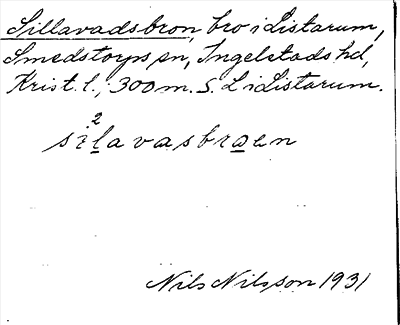 Sillavadsbron, bro i Listarum,
Smedstorps sn, Ingelstads hd,
Krist. l., 300 m. S. L i Listarum.
2
silavasbroen
Nils Nilsson 1931